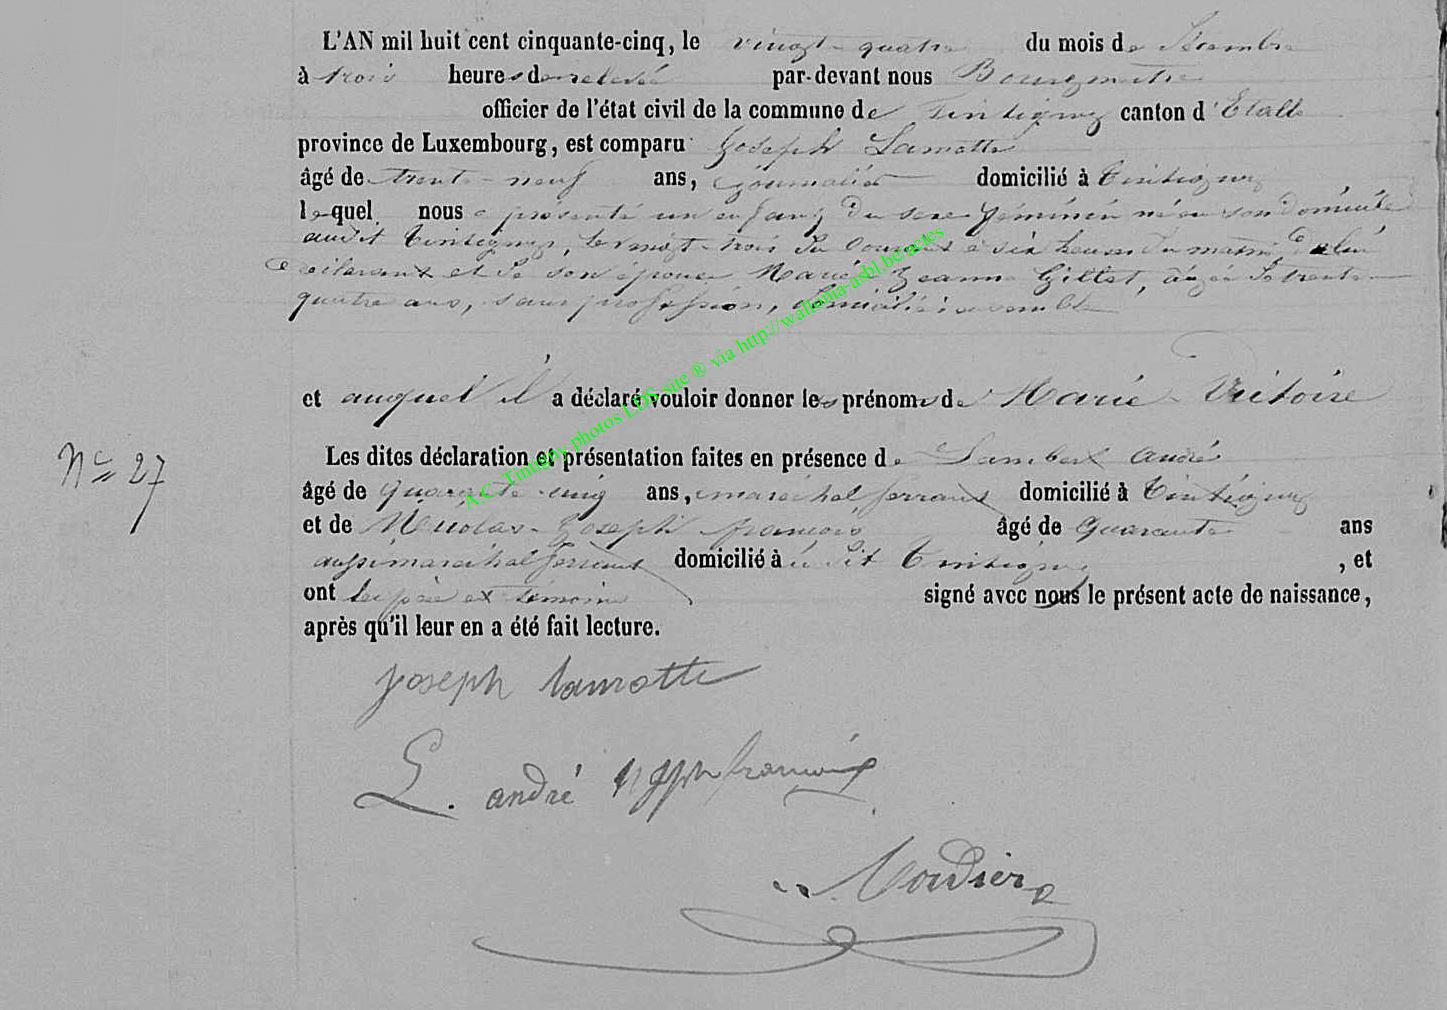 L'AN mil huit cent cinquante-cinq, le vingt-quatre du mois de Décembre
à trois heures de relevée par-devant nous Bourgmestre
officier de l'état civil de la commune de Tintigny canton d'Etalle
province de Luxembourg, est comparu Joseph Lamotte
âgé de trente-neuf ans, journalier domicilié à Tintigny
lequel nous a présenté un enfant du sexe féminin né en son domicile
audit Tintigny, le vingt-trois du courant à six heures du matin, de lui
déclarant et de son épouse Marie Jeanne Gillet, âgée de trente
quatre ans, sans profession, domiciliés ensemble
et auquel il a déclaré vouloir donner les prénoms de Marie-Victoire
Les dites déclaration et présentation faites en présence de Lambert André
N° 27
âgé de quarante-cinq ans, maréchal ferrant domicilié à Tintigny
et de Nicolas-Joseph françois âgé de quarante ans
aussi maréchal ferrant domicilié à dit Tintigny, et
ont les père et témoins signé avec nous le présent acte de naissance,
après qu'il leur en a été fait lecture.
joseph lamotte
L. andré françois
A.C. Tintigny photos LDS site ® via http://wallonia-asbl.be/actes